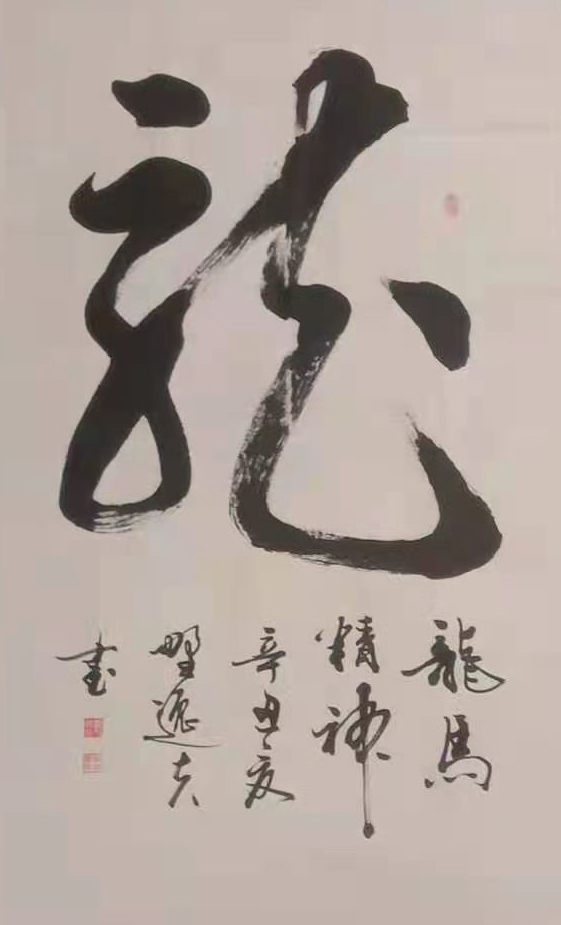 龍
龍馬
精神
辛丑夏
野逸夫
書